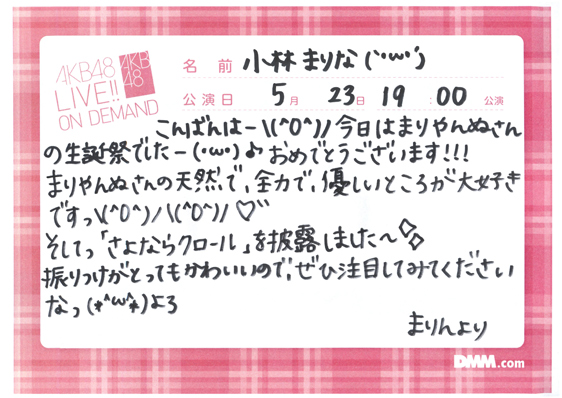 AKB48
LIVE!!
ON DEMAND
AKB
48
名前 小林まりな(´･ω･`)
公演日 5月 23日 19:00 公演
こんばんはー\(^O^)/今日はまりやんぬさん
の生誕祭でしたー(･ω･)♪おめでとうございます!!!
まりやんぬさんの天然で、全力で、優しいところが大好き
ですっ\(^O^)/\(^O^)/♡
そしてっ「さよならクロール」を披露しました〜
振りつけがとってもかわいいので、ぜひ注目してみてください
なっ(*^ω^*)よろ
まりんより
DMM.com